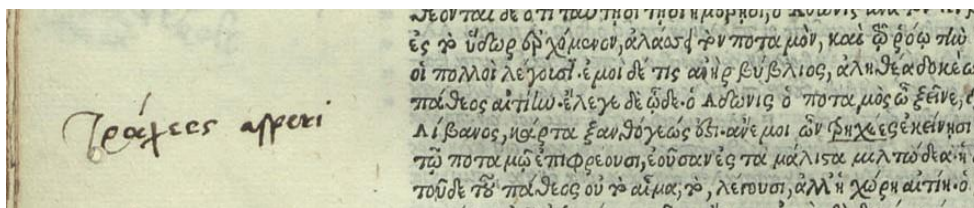 θέονται δὲ ὅτι ταύτησι τῆσι ἡμέρησι, ὁ Ἄδωνις ἀνὰ τὸν
ἐς τὸ ὕδωρ ἐρχόμενον, ἀλάσσει τὸν ποταμὸν, καὶ τῷ ῥόῳ τὴν
οἱ πολλοὶ λέγουσι. ἐμοὶ δέ τις ἀνὴρ βύβλιος, ἀληθέα δοκέω
πάθεος αἰτίην. ἔλεγε δὲ ὧδε. ὁ Αδωνις ὁ ποταμὸς ὦ ξεῖνε,
τράχεες asperi
Λίβανος, κάρτα ξανθόγεώς ἐστι. ἄνεμοι ὦν τρηχέες ἐκείνησι
τῷ ποταμῷ ἐπιφρέουσι, ἐοῦσαν ἐς τὰ μάλιστα μιλτώδεα. ἡ
τοῦδε τοῦ πάθεος οὐ τὸ αἷμα, τὸ, λέγουσι, ἀλλ' ἡ χώρη αἰτίη. ὁ